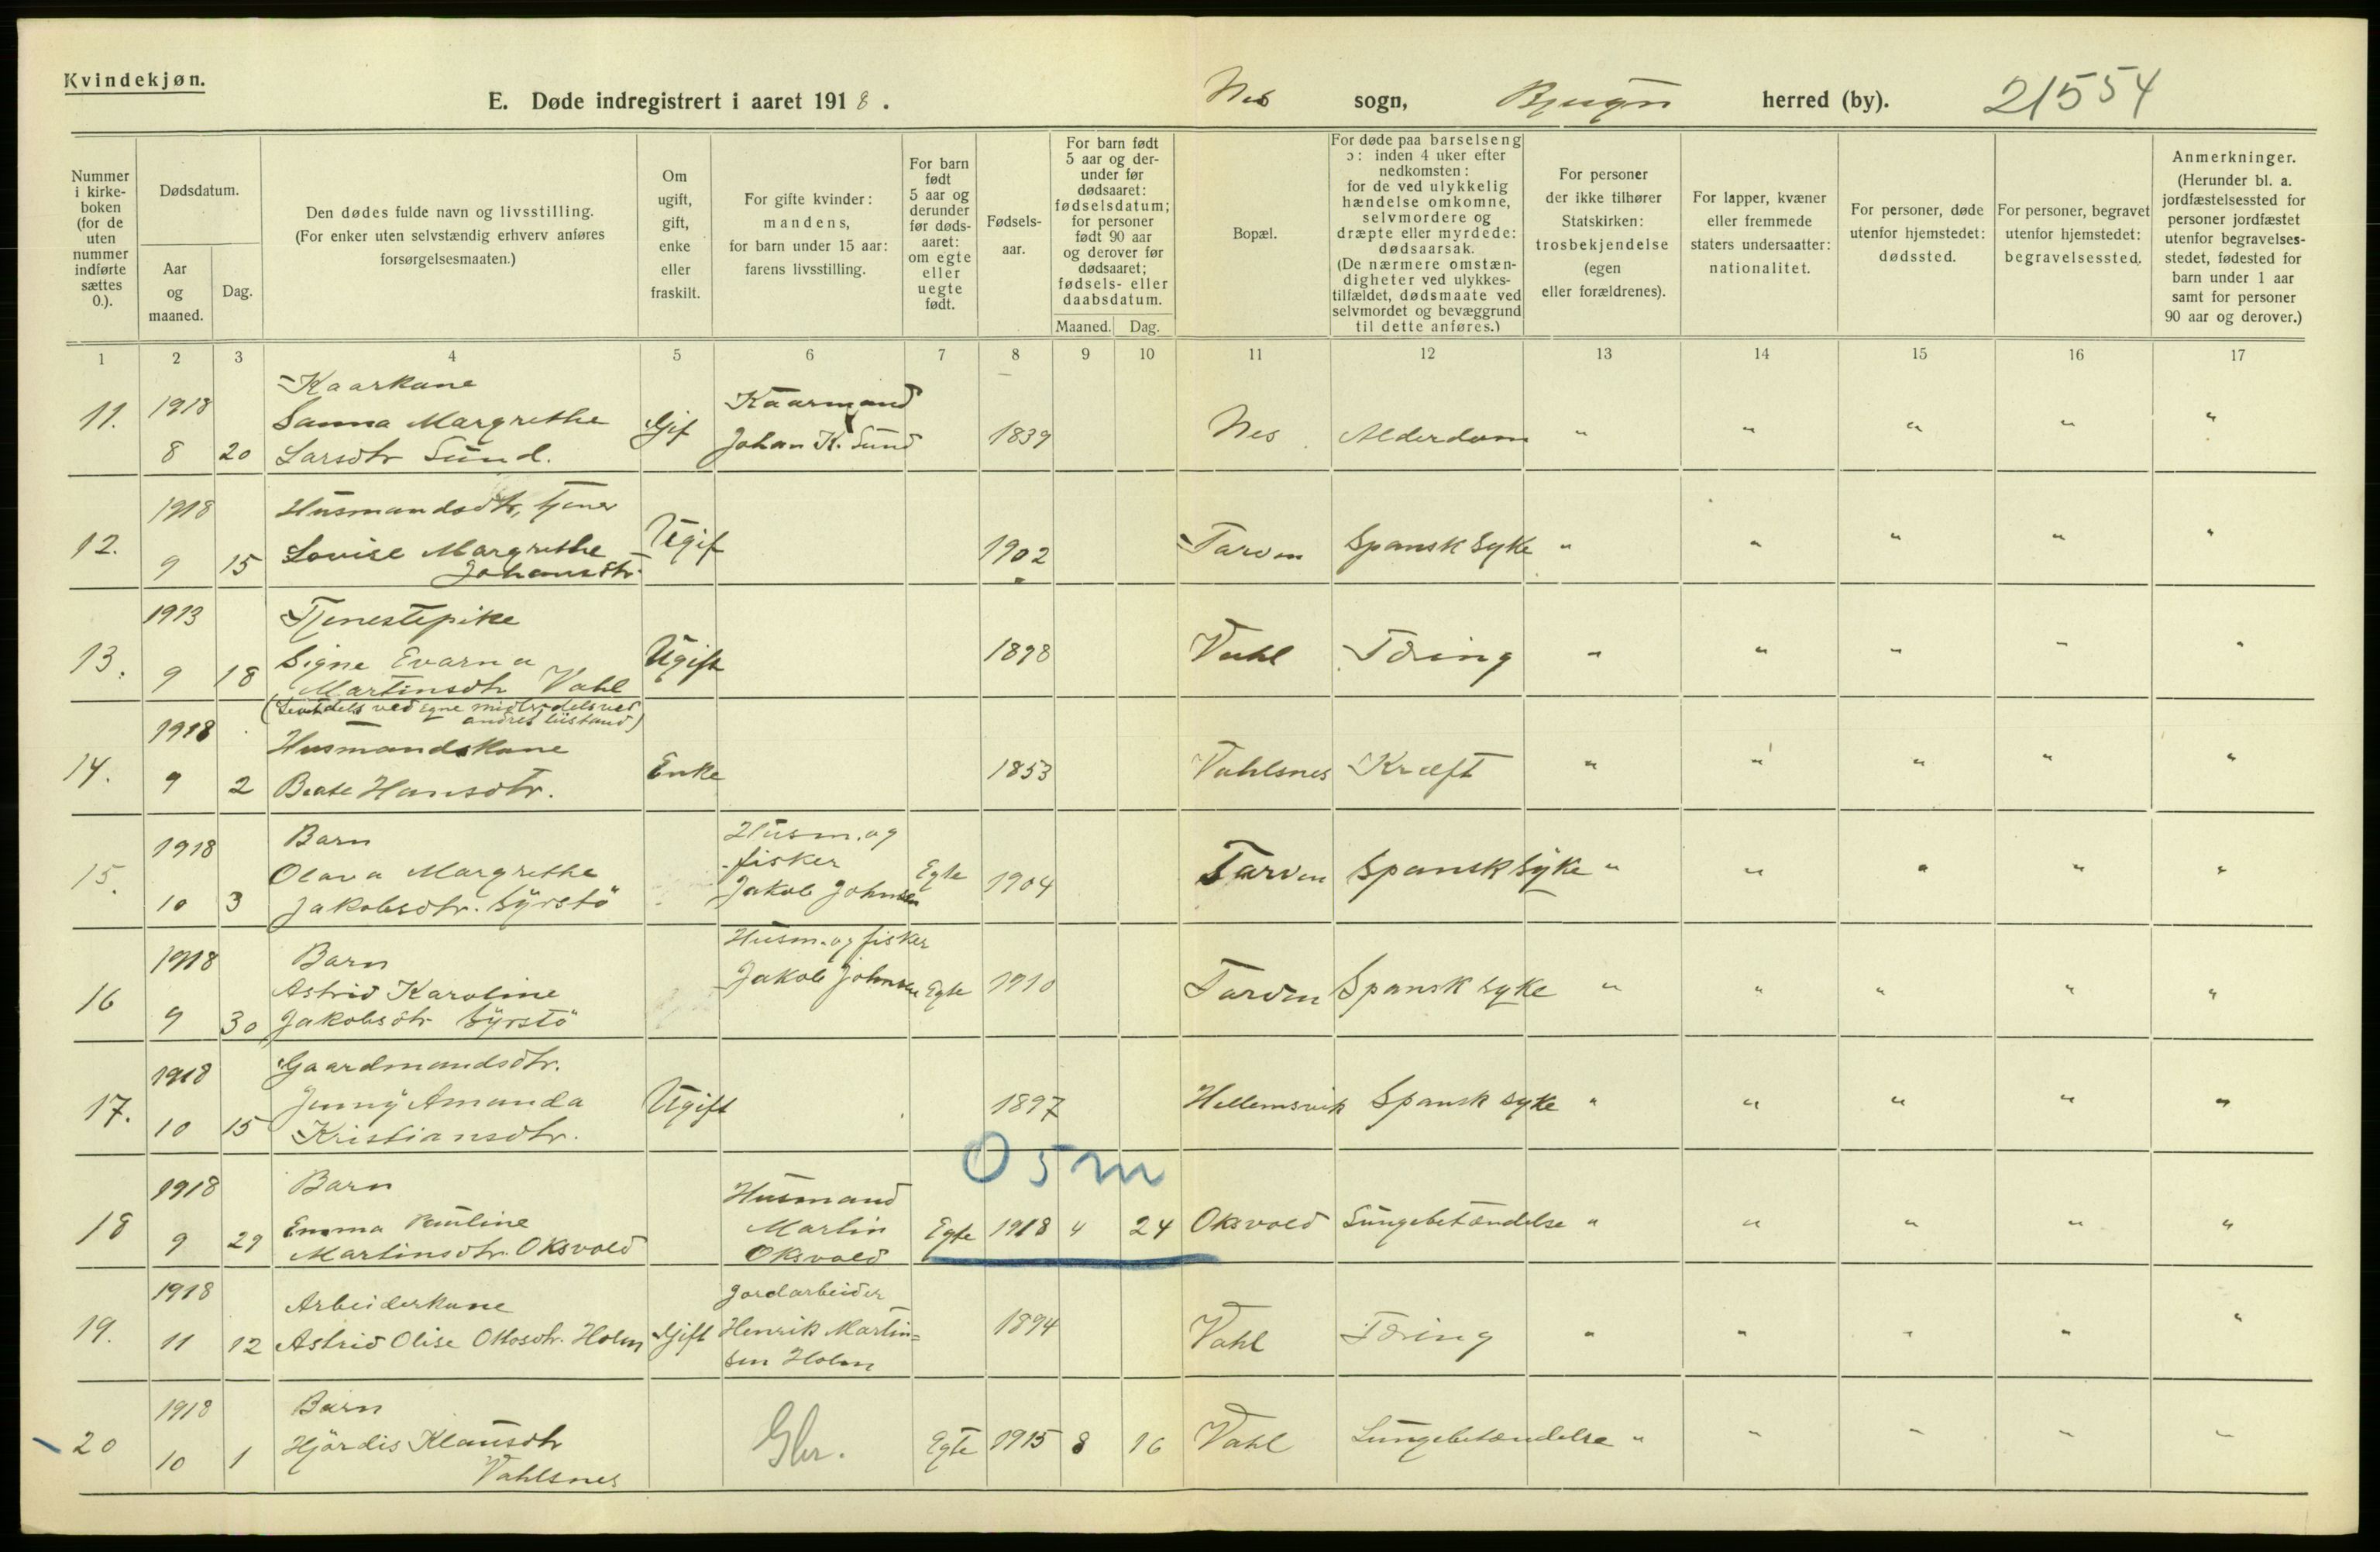 Kvindekjøn.
E. Døde indregistrert i aaret 1918.
Nes sogn, Bjugn herred (by). 21554
Nummer i kirke-boken (for de uten nummer indførte sættes 0.).
Dødsdatum.
Aar og maaned.
Dag.
Den dødes fulde navn og livsstilling.
(For enker uten selvstændig erhverv anføres
forsørgelsesmaaten.)
Om ugift, gift, enke eller fraskilt.
For gifte kvinder:
mandens,
for barn under 15 aar:
farens livsstilling.
For barn født 5 aar og derunder før døds-aaret: om egte eller uegte født.
Fødsels-aar.
For barn født 5 aar og der-under før dødsaaret: fødselsdatum; for personer født 90 aar og derover før dødsaaret; fødsels- eller daabsdatum.
Maaned. Dag.
Bopæl.
For døde paa barselseng
ɔ: inden 4 uker efter
nedkomsten:
for de ved ulykkelig
hændelse omkomne,
selvmordere og
dræpte eller myrdede:
dødsaarsak.
(De nærmere omstæn-
digheter ved ulykkes-
tilfældet, dødsmaate ved
selvmordet og bevæggrund
til dette anføres.)
For personer
der ikke tilhører
Statskirken:
trosbekjendelse
(egen
eller forældrenes).
For lapper, kvæner
eller fremmede
staters undersaatter:
nationalitet.
For personer, døde
utenfor hjemstedet:
dødssted.
For personer, begravet
utenfor hjemstedet:
begravelsessted.
Anmerkninger.
(Herunder bl. a.
jordfæstelsessted for
personer jordfæstet
utenfor begravelses-
stedet, fødested for
barn under 1 aar
samt for personer
90 aar og derover.)
1 2 3 4 5 6 7 8 9 10 11 12 13 14 15 16 17
11. 1918 8 20 Kaarkone
Sanna Margrethe
Larsdtr Sund. Gif Kaarmand
Johan K. Sund 1839 Nes Alderdom " " " " "
12. 1918 9 15 Husmandsdtr, tjener
Lovise Margrethe
Johansdtr. Ugif 1902 Tarven Spansk syke " " " " "
13. 1913 9 18 Tjenestepike
Signe Evarna
Martinsdtr Vahl Ugift 1898 Vahl Tæring " " " " "
14. 1918 9 2 (Levet dels ved egne midler dels ved
andres tilstand)
Husmandskone
Beate Hansdtr. Enke 1853 Vahlsnes Kræft " " " " "
15. 1918 10 3 Barn
Olava Margrethe
Jakobsdtr. Syrstö Husm. og
fisker
Jakob Johnsen Egte 1904 Tarven Spansk syke " " " " "
16 1918 9 30 Barn
Astrid Karoline
Jakobsdtr Syrstö Husm. og fisker
Jakob Johnsen Egte 1910 Tarven Spansk syke " " " " "
17. 1918 10 15 Gaardmandsdtr.
Jenny Amanda
Kristiansdtr. Ugift 1897 Hellemsvik Spansk syke " " " " "
0 5 m
18 1918 9 29 Barn
Emma Pauline
Martinsdtr. Oksvold Husmand
Martin
Oksvold Egte 1918 4 24 Oksvold Lungebetændelse " " " " "
19. 1918 11 12 Arbeiderkone
Astrid Olise Ottosdtr. Holm Gift Jordarbeider
Henrik Martin=
sen Holm 1894 Vahl Tæring " " " " "
20 1918 10 1 Barn
Hjördis Klausdtr
Vahlsnes Gbr. Egte 1915 8 16 Vahl Lungebetændelse " " " " "